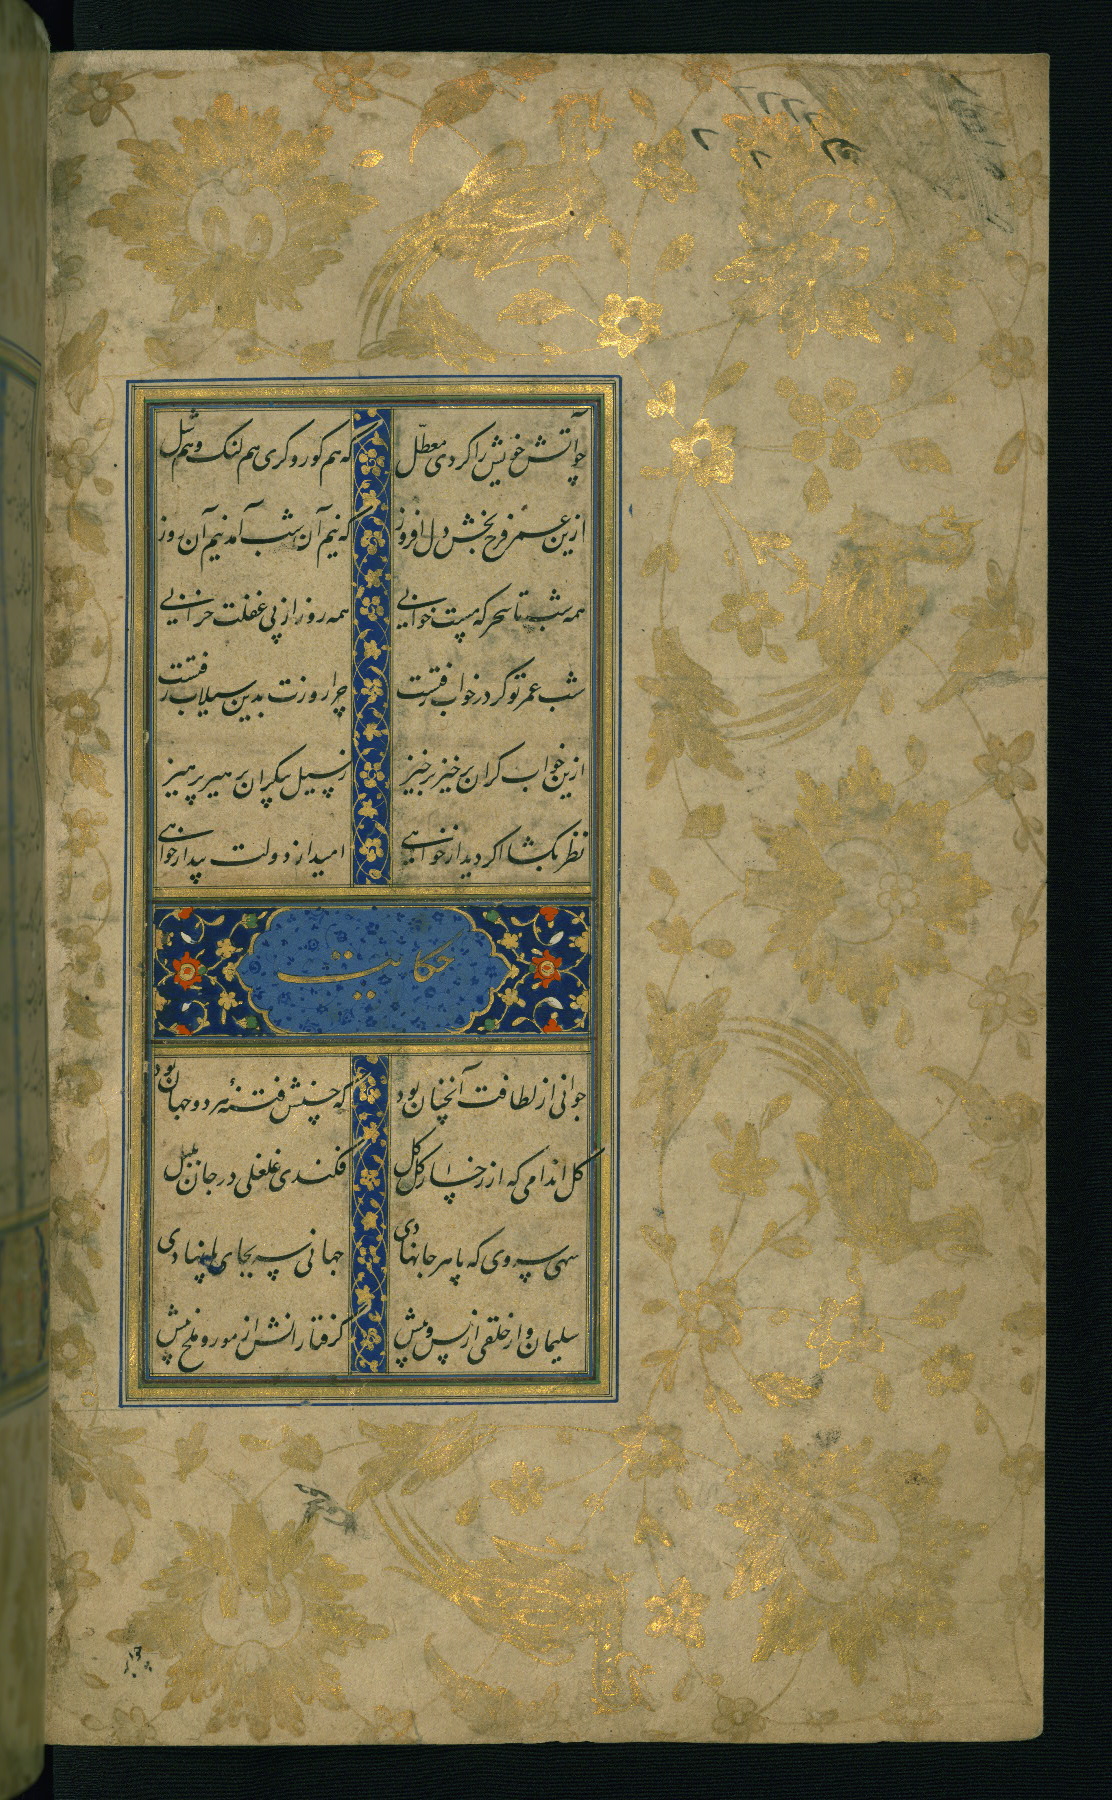 چو آتش خویش را کردی معطل که هم کور و کری هم لنک و هم شل
ازین عمر فرح بخش دل افروز که نیم آن شب آمد نیم آن روز
همه شب تا سحر که مست خوابی همه روز از پی غفلت خرابی
شب عمر تو کر در خواب رفتست چرا روزت بدین سیلاب رفتست
ازین خواب کران برخیز برخیز ز سیل بیکران پرهیز پرهیز
نظر بکشا اکر دیدار خواهی امید از دولت بیدار خواهی
حکایت
جوانی از لطافت آنچنان بود که چشمش فتنهٔ هر دو جهان بود
کل اندامی که از رخسار کل کل فکندی غلغلی در جان بلبل
سهی سروی که پا هر جا نهادی جهانی سر بجای پا نهادی
سلیمان وار خلقی از پس و پیش گرفتارانش از مور و ملخ بیش